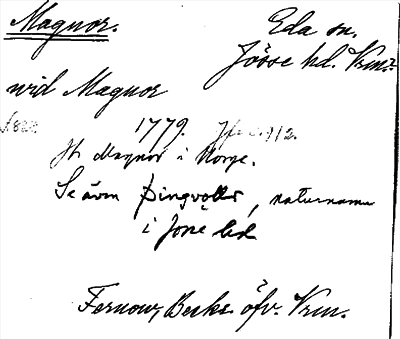 Magnor.
Eda sn.
Jösse hd. Vrml.
wid Magnor
1779.
Jfr Magnor i Norge.
Se även Þingvoller, naturnamn
i Jösse hd
Fernow, Beskr. öfv. Vrml.